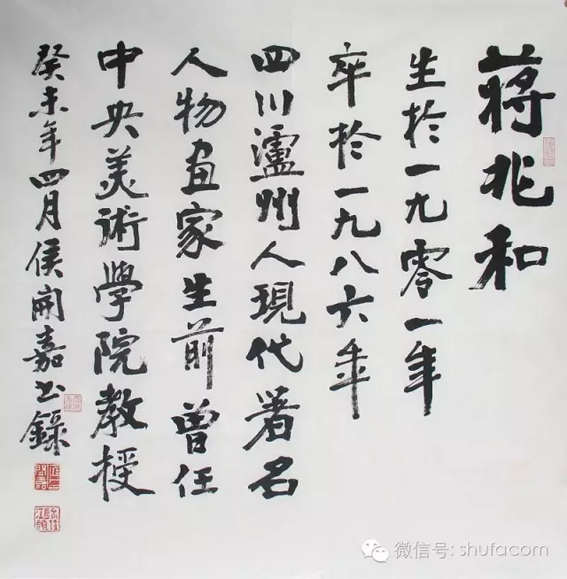 蔣兆和
生於一九零一年
卒於一九八六年
四川瀘州人現代著名
人物畫家生前曾任
中央美術學院教授
癸未年四月侯開嘉书錄
微信号: shufacom